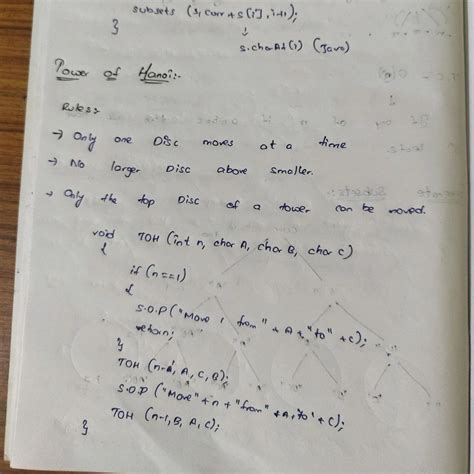 subsets (s, curr + s[i], i+1);
}
↓
s.charAt(i) (Java)
Tower of Hanoi:-
Rules:
→ Only one Disc moves at a time
→ No larger Disc above smaller.
→ Only the top Disc of a tower can be moved.
void TOH (int n, char A, char B, char C)
{
if (n==1)
{
S.O.P ("Move 1 from" + A + "to" + C);
return;
}
TOH (n-1, A, C, B);
S.O.P ("Move" + n + "from" + A, "to" + C);
TOH (n-1, B, A, C);
}